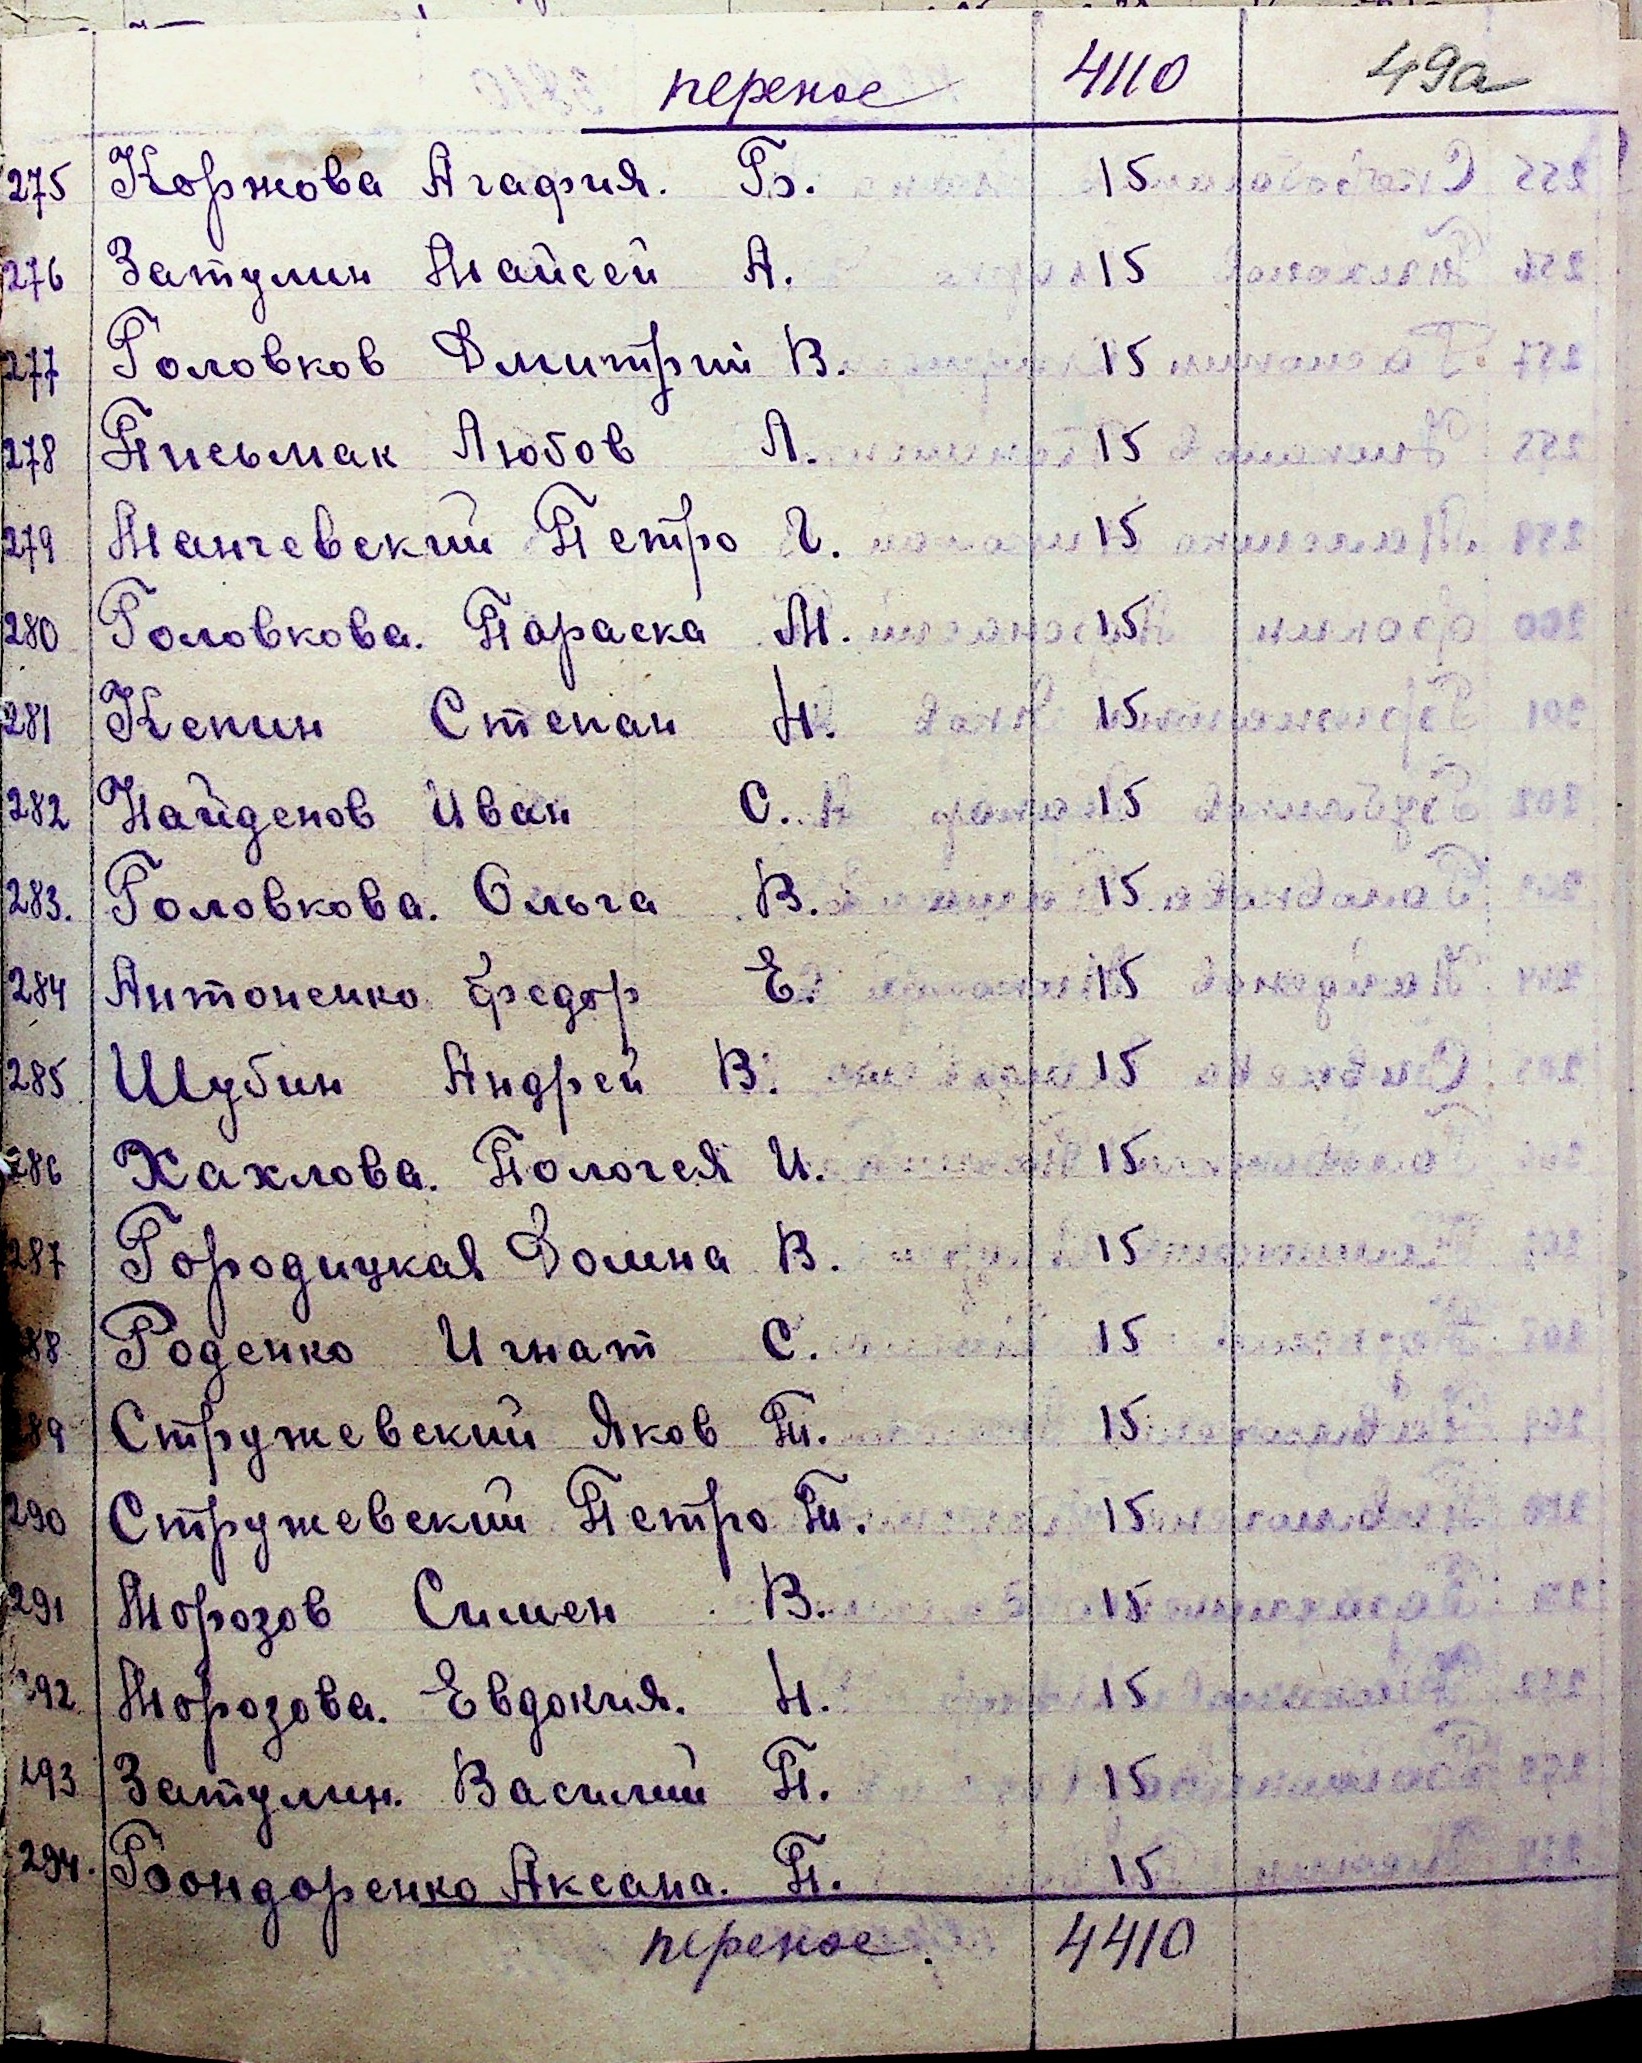 перенос 4110 49а
275 Коржова Агафия. Б. 15
276 Затулин Майсей А. 15
277 Головков Дмитрий В. 15
278 Письмак Любов Л. 15
279 Манчевский Петро Г. 15
280 Головкова. Параска М. 15
281 Кепин Степан Н. 15
282 Найденов Иван С. 15
283. Головкова. Ольга В. 15
284 Антоненко Федор Е. 15
285 Шубин Андрей В. 15
286 Хахлова. Пологея И. 15
287 Городицкая Домна В. 15
288 Роденко Игнат С. 15
289 Стружевский Яков Т. 15
290 Стружевский Петро Т. 15
291 Морозов Симен В. 15
292 Морозова. Евдокия. Н. 15
293 Затулин. Василий П. 15
294. Бондоренко Аксана. П. 15
перенос. 4410